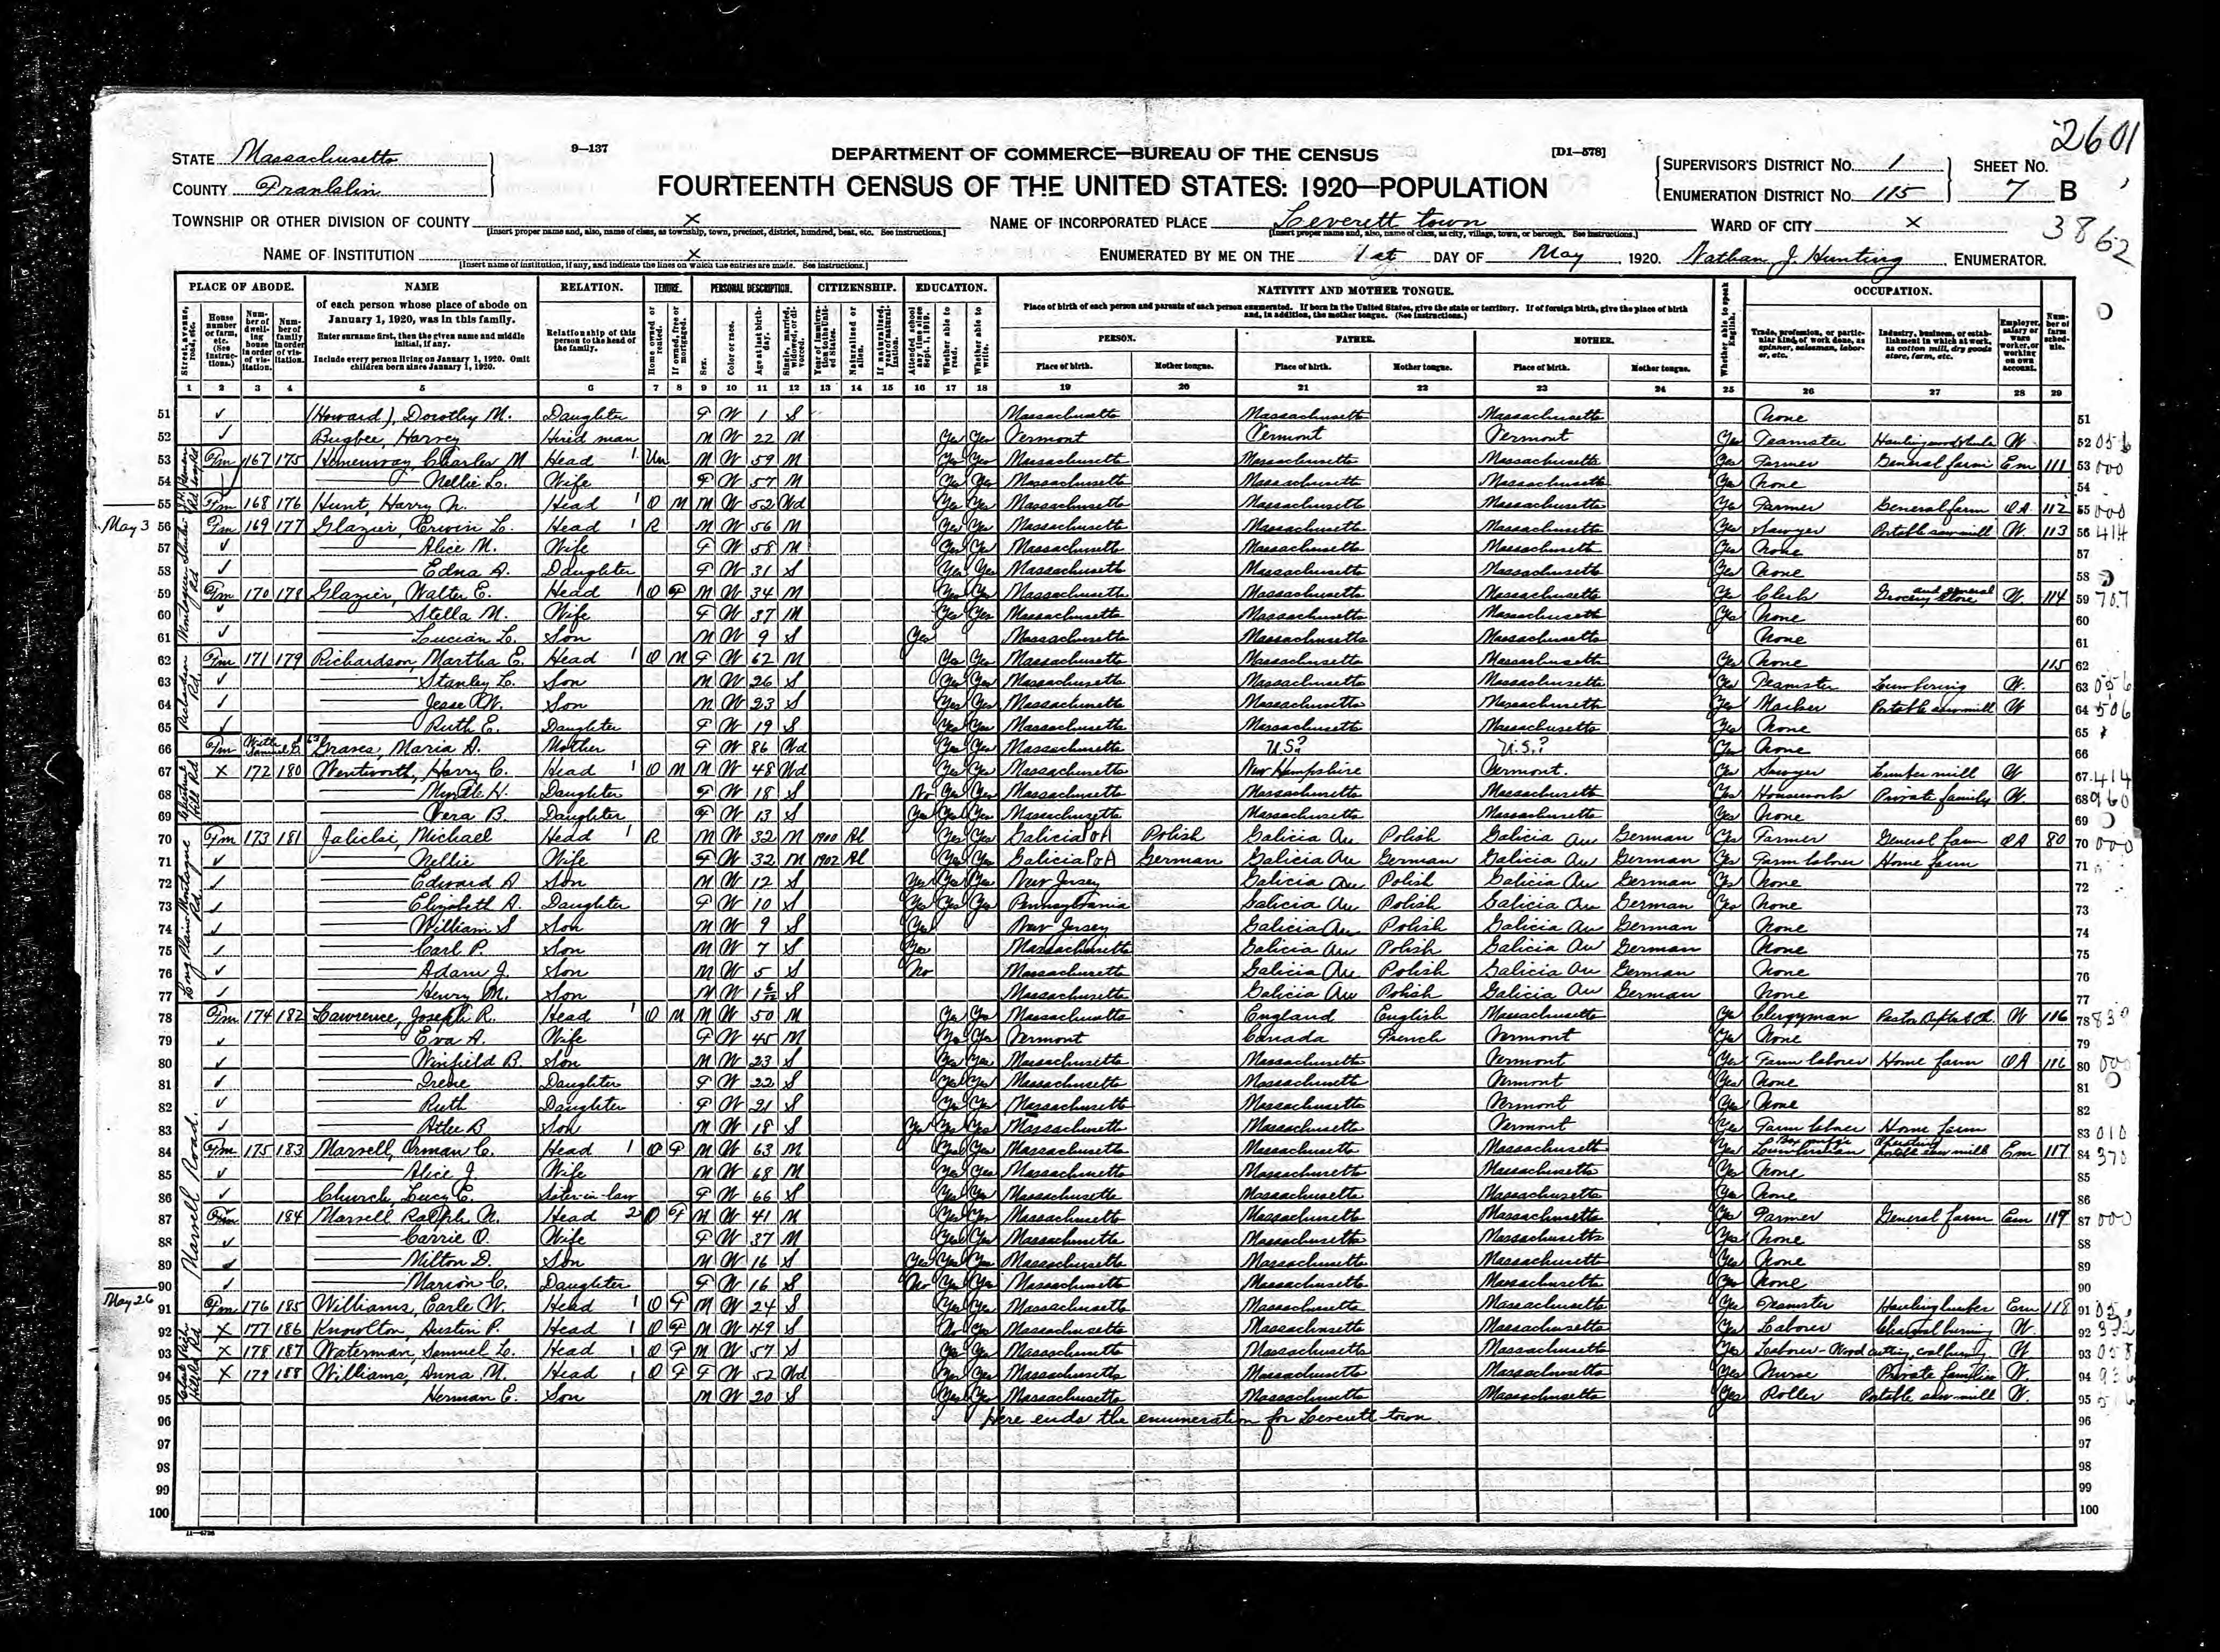 2601
STATE Massachusetts
9—137
DEPARTMENT OF COMMERCE—BUREAU OF THE CENSUS
[D1—578]
SUPERVISOR'S DISTRICT NO. 1 SHEET NO.
COUNTY Franklin
FOURTEENTH CENSUS OF THE UNITED STATES: 1920—POPULATION
ENUMERATION DISTRICT NO. 115 7 B
TOWNSHIP OR OTHER DIVISION OF COUNTY X
NAME OF INCORPORATED PLACE Leverett town
WARD OF CITY X
3862
[Insert proper name and, also, name of class, as township, town, precinct, district, hundred, beat, etc. See instructions.]
[Insert proper name and, also, name of class, as city, village, town, or borough. See instructions.]
NAME OF INSTITUTION X
ENUMERATED BY ME ON THE 1st DAY OF May, 1920. Nathan J. Hunting, ENUMERATOR.
[Insert name of institution, if any, and indicate the lines on which the entries are made. See instructions.]
PLACE OF ABODE. NAME RELATION. TENURE. PERSONAL DESCRIPTION. CITIZENSHIP. EDUCATION. NATIVITY AND MOTHER TONGUE. OCCUPATION.
of each person whose place of abode on January 1, 1920, was in this family.
Enter surname first, then the given name and middle initial, if any.
Include every person living on January 1, 1920. Omit children born since January 1, 1920.
Relationship of this person to the head of the family.
Place of birth of each person and parents of each person enumerated. If born in the United States, give the state or territory. If of foreign birth, give the place of birth and, in addition, the mother tongue. (See instructions.)
PERSON. FATHER. MOTHER.
Place of birth. Mother tongue. Place of birth. Mother tongue. Place of birth. Mother tongue.
1 2 3 4 5 6 7 8 9 10 11 12 13 14 15 16 17 18 19 20 21 22 23 24 25 26 27 28 29
51 (Howard), Dorothy M. Daughter F W 1 S Massachusetts Massachusetts Massachusetts None 51
52 Bugbee, Harvey Hired man M W 22 M Yes Yes Vermont Vermont Vermont Yes Teamster W 52
53 Fm 167 175 Hemenway, Charles M Head 1 Un M W 59 M Yes Yes Massachusetts Massachusetts Massachusetts Yes Farmer General farm Em 111 53 000
54 Nellie L. Wife F W 57 M Yes Yes Massachusetts Massachusetts Massachusetts Yes None 54
55 Fm 168 176 Hunt, Harry N. Head 1 O M M W 52 Wd Yes Yes Massachusetts Massachusetts Massachusetts Yes Farmer General farm OA 112 55 000
May 3 56 Fm 169 177 Glazier, Erwin L. Head 1 R M W 56 M Yes Yes Massachusetts Massachusetts Massachusetts Yes Sawyer Portable saw mill W. 113 56 414
57 Alice M. Wife F W 58 M Yes Yes Massachusetts Massachusetts Massachusetts Yes None 57
58 Edna A. Daughter F W 31 S Yes Yes Massachusetts Massachusetts Massachusetts Yes None 58
59 Fm 170 178 Glazier, Walter E. Head 1 O F M W 34 M Yes Yes Massachusetts Massachusetts Massachusetts Yes Clerk Grocery and general store W. 114 59 707
60 Stella M. Wife F W 37 M Yes Yes Massachusetts Massachusetts Massachusetts Yes None 60
61 Lucian L. Son M W 9 S Yes Massachusetts Massachusetts Massachusetts None 61
62 Fm 171 179 Richardson, Martha E. Head 1 O M F W 62 M Yes Yes Massachusetts Massachusetts Massachusetts Yes None 115 62
63 Stanley L. Son M W 26 S Yes Yes Massachusetts Massachusetts Massachusetts Yes Teamster Lumbering W. 63 056
64 Jesse W. Son M W 23 S Yes Yes Massachusetts Massachusetts Massachusetts Yes Marker Portable saw mill W 64 506
65 Ruth E. Daughter F W 19 S Yes Yes Massachusetts Massachusetts Massachusetts Yes None 65
66 Fm Graves, Maria A. Mother F W 86 Wd Yes Yes Massachusetts U.S.? U.S.? Yes None 66
67 X 172 180 Wentworth, Harry C. Head 1 O M M W 48 Wd Yes Yes Massachusetts New Hampshire Vermont. Yes Sawyer Lumber mill W 67 414
68 Myrtle H. Daughter F W 18 S No Yes Yes Massachusetts Massachusetts Massachusetts Yes Housework Private family W. 68 960
69 Vera B. Daughter F W 13 S Yes Yes Yes Massachusetts Massachusetts Massachusetts Yes None 69
70 Fm 173 181 Michael Head 1 R M W 32 M 1900 Al Yes Yes Galicia PoA Polish Galicia Au Polish Galicia Au German Yes Farmer General farm OA 80 70 000
71 Nellie Wife F W 32 M 1902 Al Yes Yes Galicia PoA German Galicia Au German Galicia Au German Yes Farm laborer Home farm 71
72 Edward A Son M W 12 S Yes Yes Yes New Jersey Galicia Au Polish Galicia Au German Yes None 72
73 Elizabeth A. Daughter F W 10 S Yes Yes Yes Pennsylvania Galicia Au Polish Galicia Au German Yes None 73
74 William S Son M W 9 S Yes New Jersey Galicia Au Polish Galicia Au German None 74
75 Carl P. Son M W 7 S Yes Massachusetts Galicia Au Polish Galicia Au German None 75
76 Adam J. Son M W 5 S No Massachusetts Galicia Au Polish Galicia Au German None 76
77 Henry M. Son M W 1 6/12 S Massachusetts Galicia Au Polish Galicia Au German None 77
78 Fm 174 182 Lawrence, Joseph R. Head 1 O M M W 50 M Yes Yes Massachusetts England English Massachusetts Yes Clergyman Pastor Baptist Ch. W 116 78 830
79 Eva A. Wife F W 45 M Yes Yes Vermont Canada French Vermont Yes None 79
80 Winfield B. Son M W 23 S Yes Yes Massachusetts Massachusetts Vermont Yes Farm laborer Home farm OA 116 80 000
81 Irene Daughter F W 22 S Yes Yes Massachusetts Massachusetts Vermont Yes None 81
82 Ruth Daughter F W 21 S Yes Yes Massachusetts Massachusetts Vermont Yes None 82
83 Son M W 18 S Yes Yes Yes Massachusetts Massachusetts Vermont Yes Farm laborer Home farm 83 010
84 Fm 175 183 Marvell, Orman C. Head 1 O F M W 63 M Yes Yes Massachusetts Massachusetts Massachusetts Yes Lumberman portable saw mill Em 117 84 370
85 Alice J. Wife M W 68 M Yes Yes Massachusetts Massachusetts Massachusetts Yes None 85
86 Church, Lucy E. Sister-in-law F W 66 S Yes Yes Massachusetts Massachusetts Massachusetts Yes None 86
87 Fm 184 Marvell Ralph N. Head 2 O F M W 41 M Yes Yes Massachusetts Massachusetts Massachusetts Yes Farmer General farm Em 119 87 000
88 Carrie O. Wife F W 37 M Yes Yes Massachusetts Massachusetts Massachusetts Yes None 88
89 Milton D. Son M W 16 S Yes Yes Yes Massachusetts Massachusetts Massachusetts Yes None 89
90 Marion C. Daughter F W 16 S No Yes Yes Massachusetts Massachusetts Massachusetts Yes None 90
May 26 91 Fm 176 185 Williams, Earle W. Head 1 O F M W 24 S Yes Yes Massachusetts Massachusetts Massachusetts Yes Teamster Hauling lumber Em 118 91
92 X 177 186 Knowlton, Austin P. Head 1 O F M W 49 S No Yes Massachusetts Massachusetts Massachusetts Yes Laborer Charcoal burning W. 92
93 X 178 187 Waterman, Samuel L. Head 1 O F M W 57 S Yes Yes Massachusetts Massachusetts Massachusetts Yes Laborer - Wood cutting, coal burning W 93
94 X 179 188 Williams, Anna M. Head 1 O F F W 52 Wd Yes Yes Massachusetts Massachusetts Massachusetts Yes Nurse Private families W. 94
95 Herman E. Son M W 20 S Yes Yes Massachusetts Massachusetts Massachusetts Yes Roller Portable saw mill W. 95
96 Here ends the enumeration for Leverett town 96
97 97
98 98
99 99
100 100
Richardson Rd.
Chestnut Hill Rd
Long Plain Montague Rd.
Marvell Road.